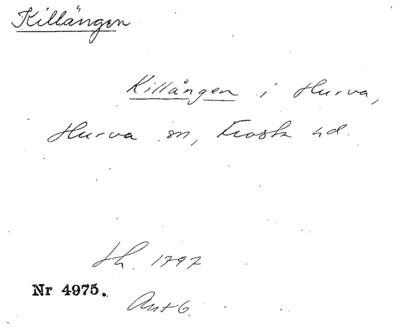 Killängen
Killängen i Hurva,
Hurva sn, Frosta hd.
lh. 1797
Nr 4975.
Ant 6.